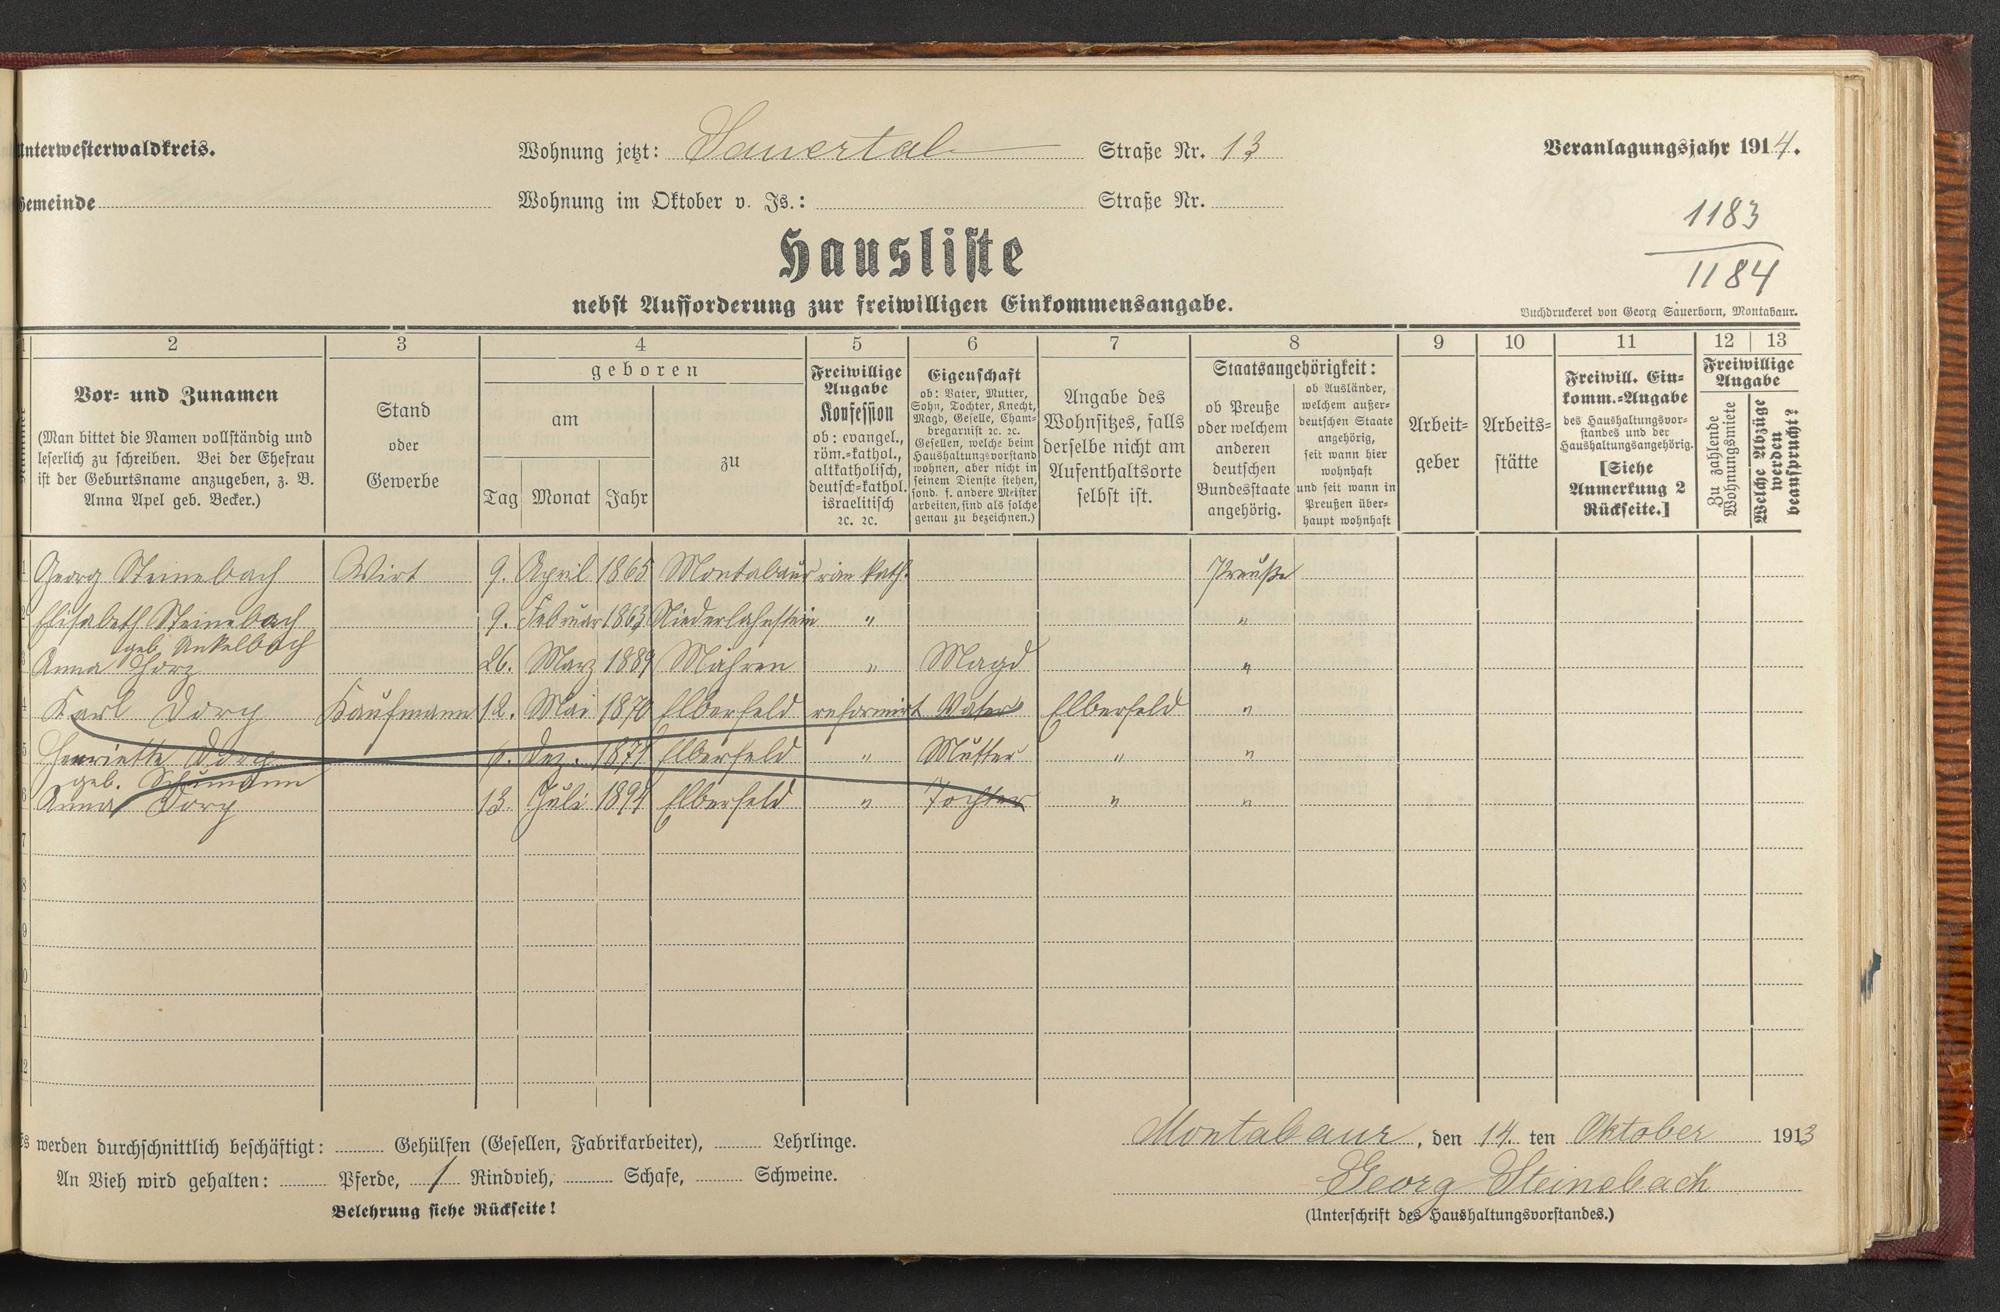 Unterwesterwaldkreis.
Wohnung jetzt: Sauertal Straße Nr. 13
Veranlagungsjahr 1914.
Gemeinde
Wohnung im Oktober v. Js.: Straße Nr.
1183
1184
Hausliste
nebst Aufforderung zur freiwilligen Einkommensangabe.
Buchdruckerei von Georg Sauerborn, Montabaur.
2 3 4 5 6 7 8 9 10 11 12 13
Vor- und Zunamen
(Man bittet die Namen vollständig und
leserlich zu schreiben. Bei der Ehefrau
ist der Geburtsname anzugeben, z. B.
Anna Apel geb. Becker.)
Stand
oder
Gewerbe
geboren
am
Tag Monat Jahr
zu
Freiwillige
Angabe
Konfession
ob: evangel.,
röm.-kathol.,
altkatholisch,
deutsch-kathol.
israelitisch
ɾc. ɾc.
Eigenschaft
ob: Vater, Mutter,
Sohn, Tochter, Knecht,
Magd, Geselle, Cham-
bregarnist ɾc. ɾc.
Gesellen, welche beim
Haushaltungsvorstand
wohnen, aber nicht in
seinem Dienste stehen,
sond. f. andere Meister
arbeiten, sind als solche
genau zu bezeichnen.)
Angabe des
Wohnsitzes, falls
derselbe nicht am
Aufenthaltsorte
selbst ist.
Staatsangehörigkeit:
ob Preuße
oder welchem
anderen
deutschen
Bundesstaate
angehörig.
ob Ausländer,
welchem außer-
deutschen Staate
angehörig,
seit wann hier
wohnhaft
und seit wann in
Preußen über-
haupt wohnhaft
Arbeit-
geber
Arbeits-
stätte
Freiwill. Ein-
komm.-Angabe
des Haushaltungsvor-
standes und der
Haushaltungsangehörig.
[Siehe
Anmerkung 2
Rückseite.]
Freiwillige
Angabe
Zu zahlende
Wohnungsmiete
Welche Abzüge
werden
beansprucht?
1 Georg Steinebach Wirt 9. April 1865 Montabaur röm kath. Preuße
2 Elisabeth Steinebach 9. Februar 1863 Niederlahnstein " "
geb. Ankelbach
3 Anna Horz 26. März 1889 Mähren " Magd "
4 Karl Dorp Kaufmann 12. Mai 1870 Elberfeld reformirt Vater Elberfeld "
5 Henriette Dorp Dez. 1871 Elberfeld " Mutter " "
geb. Schumann
6 Anna Dorp 13. Juli 1897 Elberfeld " Tochter " "
7
8
9
Es werden durchschnittlich beschäftigt: Gehülfen (Gesellen, Fabrikarbeiter), Lehrlinge.
An Vieh wird gehalten: Pferde, 1 Rindvieh, Schafe, Schweine.
Belehrung siehe Rückseite!
Montabaur, den 14. ten Oktober 1913
Georg Steinebach
(Unterschrift des Haushaltungsvorstandes.)